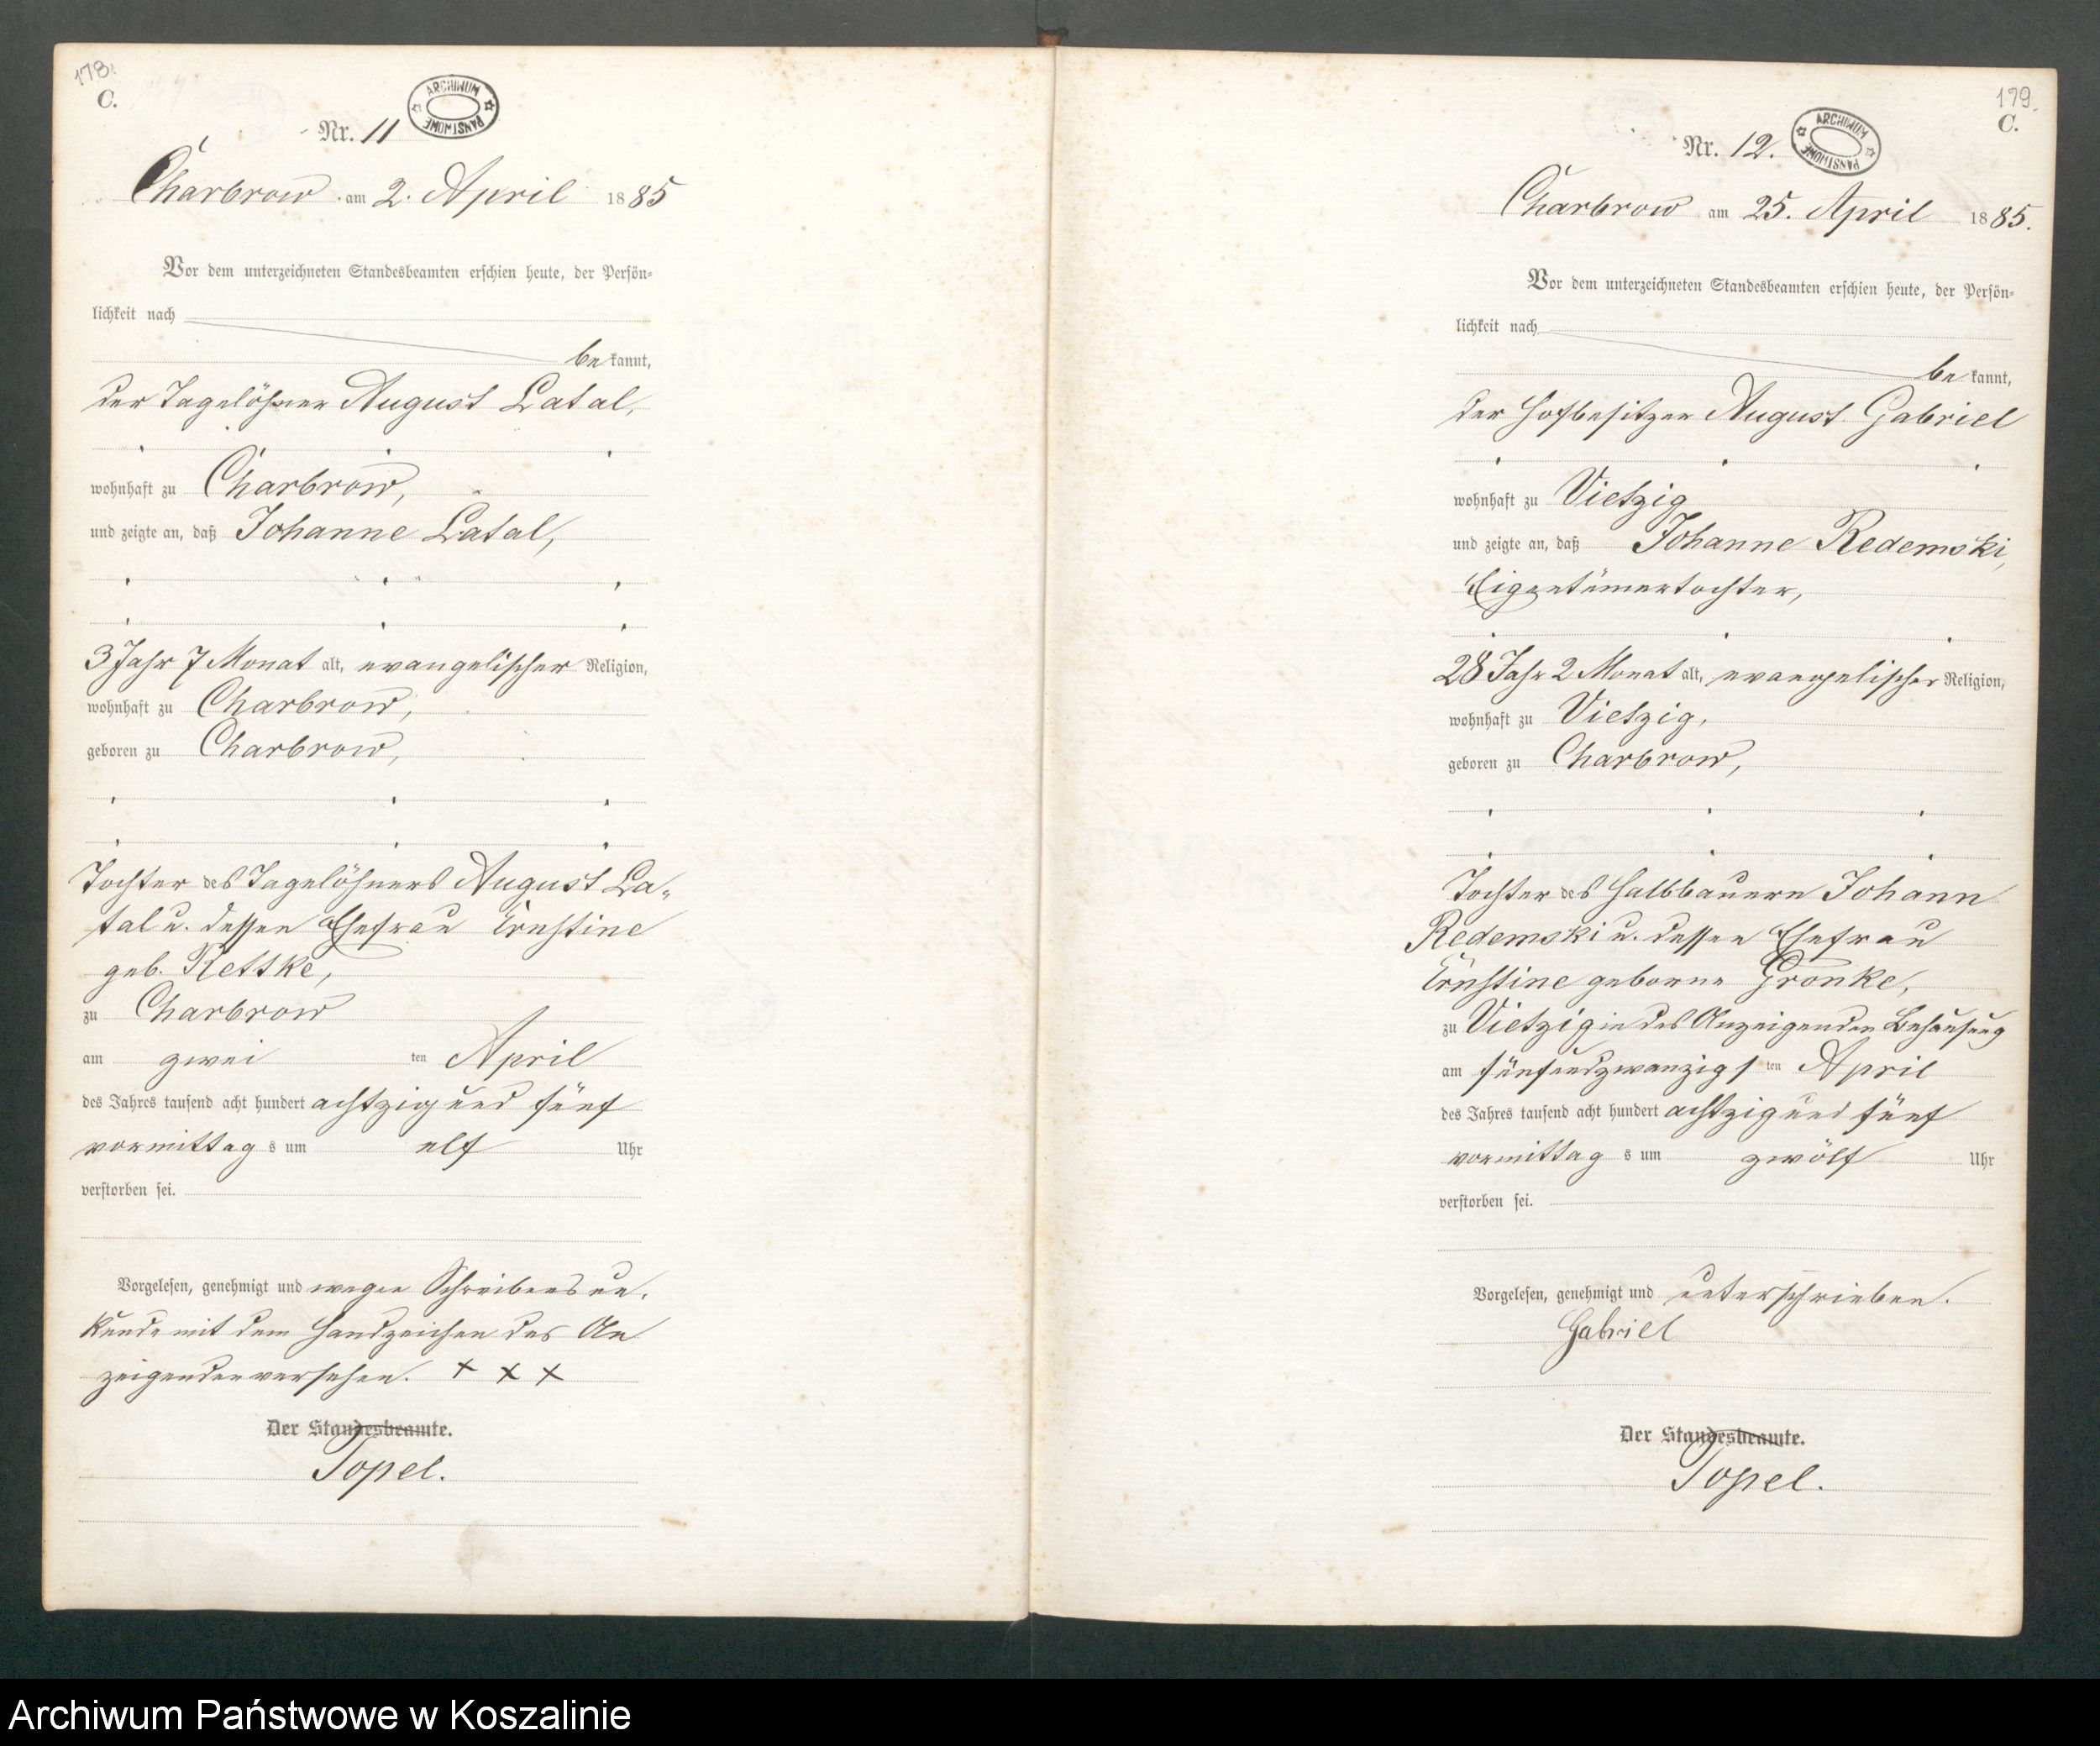 178.
C.
Nr. 11
ARCHIWUM PAŃSTWOWE
Charbrow am 2. April 1885
Vor dem unterzeichneten Standesbeamten erschien heute, der Persön-
lichkeit nach
bekannt,
der Tagelöhner August Latal,
wohnhaft zu Charbrow,
und zeigte an, daß Johanne Latal,
3 Jahr 7 Monat alt, evangelischer Religion,
wohnhaft zu Charbrow,
geboren zu Charbrow,
Tochter des Tagelöhners August La-
tal u. dessen Ehefrau Ernstine
geb. Rettke,
zu Charbrow
am zwei ten April
des Jahres tausend acht hundert achtzig und fünf
vormittags um elf Uhr
verstorben sei.
Vorgelesen, genehmigt und wegen Schreibensun-
kunde mit dem Handzeichen des An
zeigenden versehen. + + +
Der Standesbeamte.
Topel.
179.
C.
Nr. 12.
ARCHIWUM PAŃSTWOWE
Charbrow am 25. April 1885.
Vor dem unterzeichneten Standesbeamten erschien heute, der Persön-
lichkeit nach
bekannt,
der Hofbesitzer August Gabriel
wohnhaft zu Vietzig
und zeigte an, daß Johanne Redemski,
Eigentümertochter,
28 Jahr 2 Monat alt, evangelischer Religion,
wohnhaft zu Vietzig,
geboren zu Charbrow,
Tochter des Halbbauern Johann
Redemski u. dessen Ehefrau
Ernstine geborne Gronke,
zu Vietzig in des Anzeigenden Behausung
am fünfundzwanzigsten April
des Jahres tausend acht hundert achtzig und fünf
vormittags um zwölf Uhr
verstorben sei.
Vorgelesen, genehmigt und unterschrieben.
Gabriel
Der Standesbeamte.
Topel.
Archiwum Państwowe w Koszalinie